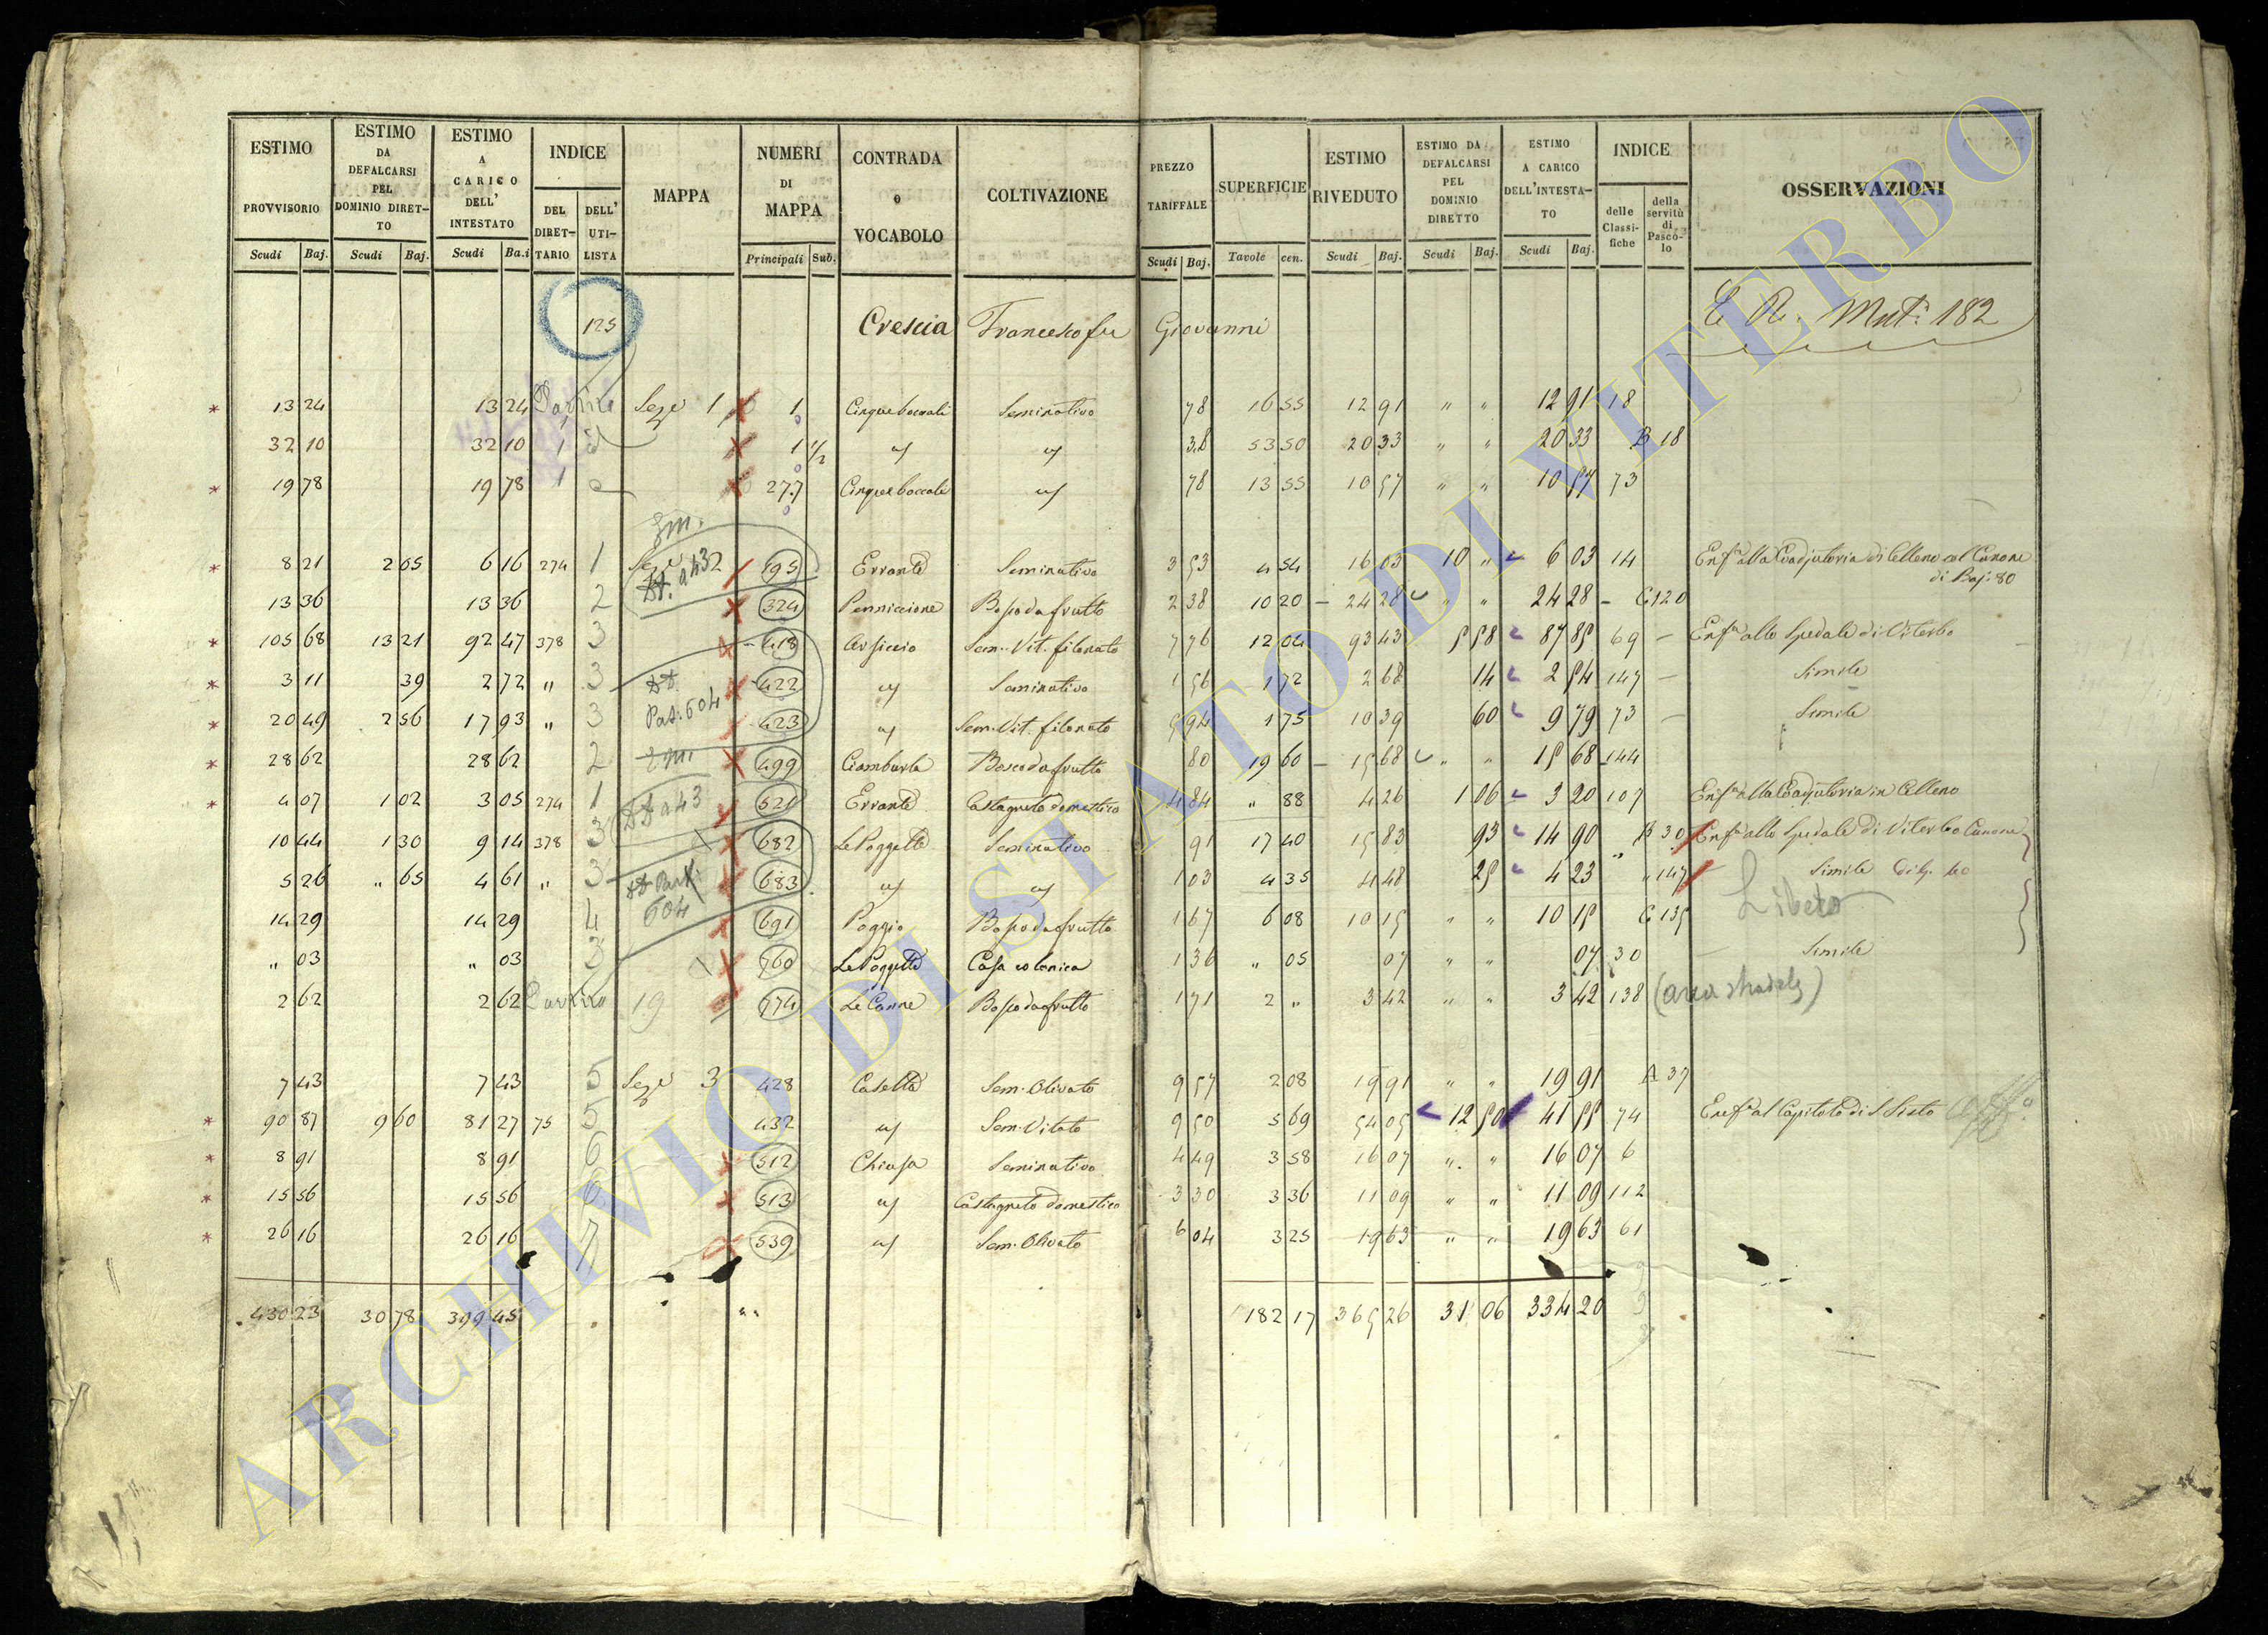 ESTIMO PROVVISORIO | ESTIMO DA DEFALCARSI PEL DOMINIO DIRETTO | ESTIMO A CARICO DELL' INTESTATO | INDICE | MAPPA | NUMERI DI MAPPA | CONTRADA o VOCABOLO | COLTIVAZIONE | PREZZO TARIFFALE | SUPERFICIE | ESTIMO RIVEDUTO | ESTIMO DA DEFALCARSI PEL DOMINIO DIRETTO | ESTIMO A CARICO DELL'INTESTATO | INDICE | OSSERVAZIONI
DEL DIRETTARIO | DELL' UTILISTA | delle Classifiche | della servitù di Pascolo
Scudi | Baj. | Scudi | Baj. | Scudi | Ba.i | Principali | Sub. | Scudi | Baj. | Tavole | cen. | Scudi | Baj. | Scudi | Baj. | Scudi | Baj.
125 Crescia Francesco fu Giovanni Mut: 182
* 13 24 | 13 24 | 1 | Sez.e 1 | 1 | Cinqueboccali | Seminativo | 78 | 16 55 | 12 91 | " " | 12 91 | 18
32 10 | 32 10 | 1 | 1 1/2 | 38 | 53 50 | 20 33 | " " | 20 33 | B 18
* 19 78 | 19 78 | 1 | 277 | Cinqueboccali | 78 | 13 55 | 10 57 | " " | 10 57 | 73
* 8 21 | 2 05 | 6 16 | 274 | 1 | Sez.e 2 | 195 | Errante | Seminativo | 3 53 | 4 54 | 16 03 | 10 " | 6 03 | 14 | Enf.a alla Coadjutoria di Celleno col Canone
di Baj: 80
13 36 | 13 36 | 2 | 324 | Penniccione | Bosco da frutto | 2 38 | 10 20 | 24 28 | " " | 24 28 | C 120
* 105 68 | 13 21 | 92 47 | 378 | 3 | 418 | Arsiccio | Sem. Vit. filonato | 7 76 | 12 04 | 93 43 | 5 58 | 87 85 | 69 | Enf.a allo Spedale di Viterbo
* 3 11 | 39 | 2 72 | " | 3 | 422 | Seminativo | 1 56 | 1 72 | 2 68 | 14 | 2 54 | 147 | Simile
* 20 49 | 2 56 | 17 93 | " | 3 | 423 | Sem. Vit. filonato | 5 94 | 1 75 | 10 39 | 60 | 9 79 | 73 | Simile
* 28 62 | 28 62 | 2 | 499 | Ciamburla | Bosco da frutto | 80 | 19 60 | 15 68 | " " | 15 68 | 144
* 4 07 | 1 02 | 3 05 | 274 | 1 | 521 | Errante | Castagneto domestico | 4 84 | " 88 | 4 26 | 1 06 | 3 20 | 107 | Enf.a alla Coadjutoria in Celleno
10 44 | 1 30 | 9 14 | 378 | 3 | 682 | Le Poggette | Seminativo | 91 | 17 40 | 15 83 | 93 | 14 90 | B 30 | Enf.a allo Spedale di Viterbo Canone
5 26 | " 65 | 4 61 | " | 3 | 683 | 1 03 | 4 35 | 4 48 | 25 | 4 23 | " 147 | Simile
14 29 | 14 29 | 4 | 691 | Poggio | Bosco da frutto | 1 67 | 6 08 | 10 15 | " " | 10 15 | C 135 | Libero
" 03 | " 03 | 3 | 760 | Le Poggette | Casa colonica | 1 36 | " 05 | 07 | " " | 07 | 30 | Simile
2 62 | 2 62 | 19 | 774 | Le Canne | Bosco da frutto | 1 71 | 2 " | 3 42 | " " | 3 42 | 138
7 43 | 7 43 | 5 | Sez.e 3 | 428 | Casette | Sem. Olivato | 9 57 | 2 08 | 19 91 | " " | 19 91 | A 37
* 90 87 | 9 60 | 81 27 | 75 | 5 | 432 | Sem. Vitato | 9 50 | 5 69 | 54 05 | 12 50 | 41 55 | 74 | Enf.a al Capitolo di S. Sisto
* 8 91 | 8 91 | 6 | 512 | Chiusa | Seminativo | 4 49 | 3 58 | 16 07 | " " | 16 07 | 6
* 15 56 | 15 56 | 6 | 513 | Castagneto domestico | 3 30 | 3 36 | 11 09 | " " | 11 09 | 112
* 26 16 | 26 16 | 7 | 539 | Sem. Olivato | 6 04 | 3 25 | 19 63 | " " | 19 63 | 61
430 23 | 30 78 | 399 45 | 182 17 | 365 26 | 31 06 | 334 20
ARCHIVIO DI STATO DI VITERBO